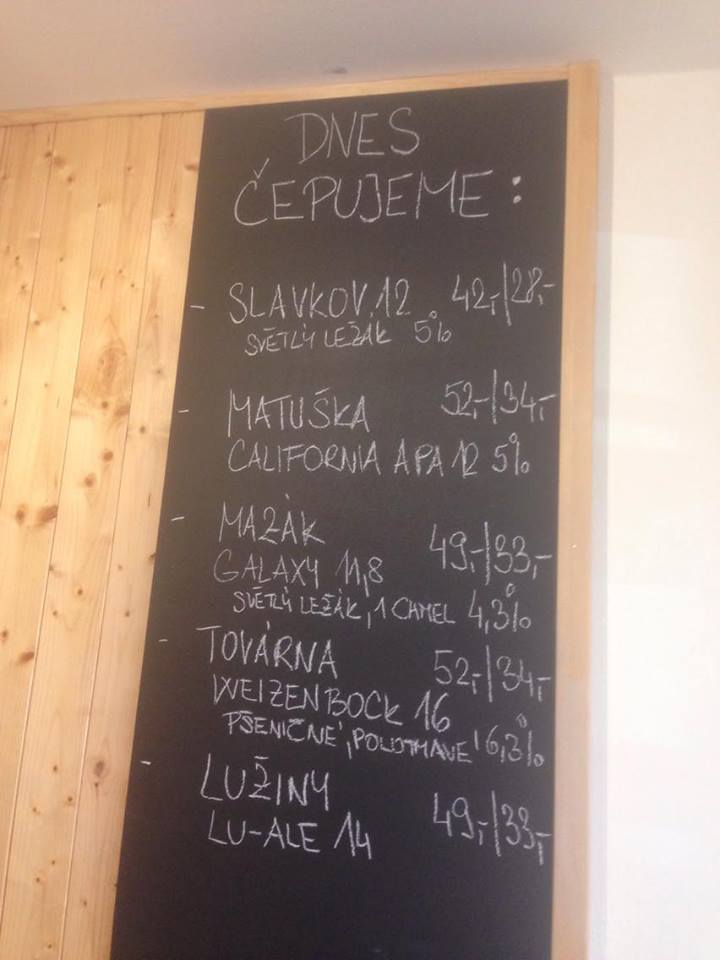 DNES
ČEPUJEME:
- SLAVKOV 12 42,-/28,-
SVĚTLÝ LEŽÁK 5%
- MATUŠKA 52,-/34,-
CALIFORNIA APA 12 5%
- MAZÁK
GALAXY 11,8 49,-/33,-
SVĚTLÝ LEŽÁK, 1 CHMEL 4,3%
- TOVÁRNA 52,-/34,-
WEIZENBOCK 16
PŠENIČNÉ, POLOTMAVÉ 6,3%
- LUŽINY
LU-ALE 14 49,-/33,-